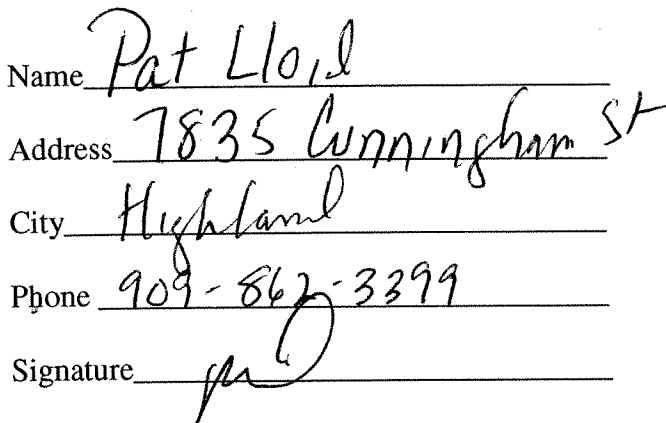 Name Pat Lloyd
Address 7835 Cunningham St
City Highland
Phone 909-862-3399
Signature